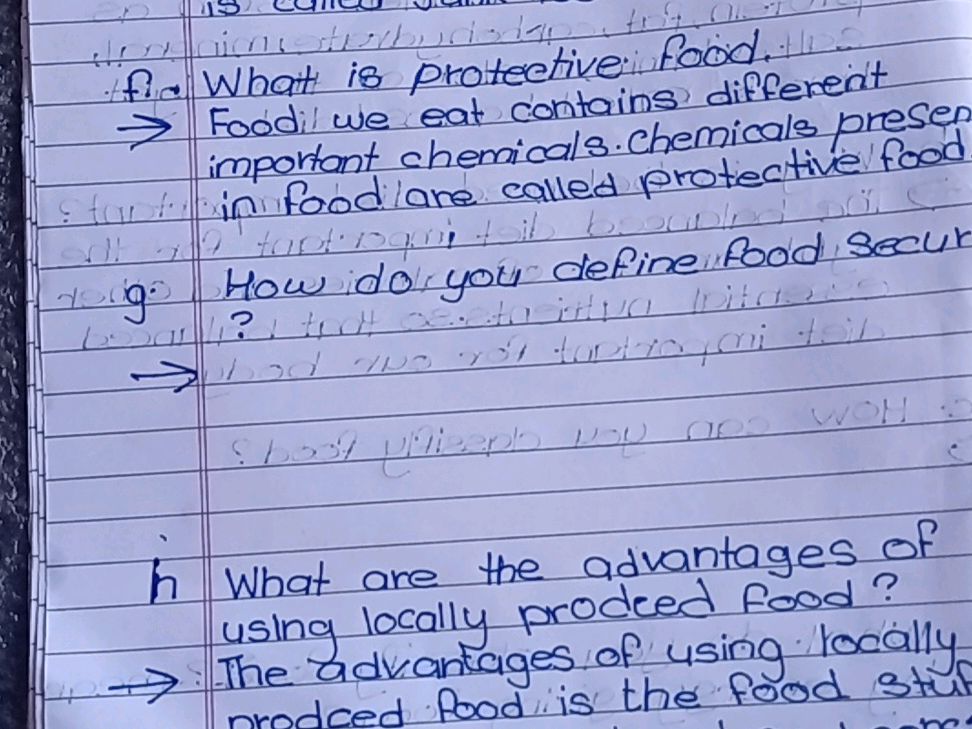 is called
f. What is protective food.
→ Food we eat contains different
important chemicals. Chemicals presen
in food are called protective food.
g. How do you define food secur
?
→
h What are the advantages of
using locally prodced food?
→ The advantages of using locally
prodced food is the food stuf